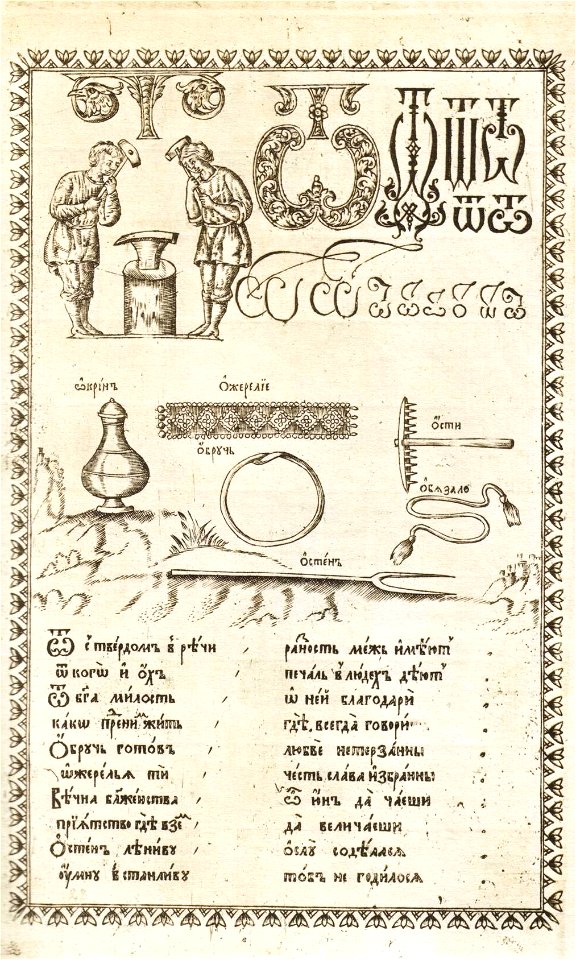 Ѿ Ѿ Ѿ Ѿ Ѿ
Ѿ Ѿ
ѡ҆кри́нъ
ѻ҆жерелїе
ѻ҆́сти
ѻ҆́бручь
ѻ҆бѧзало
ѻ҆сте́нъ
Ѿ с̾ тве́рдомъ в̾ рѣ́чи
ра́вность межь и҆мѣ́ютъ
ѿ когѡ̀ и҆ ѻ҆́хъ
печаль в̾ лю́дехъ дѣ́ютъ
Ѿ бг҃а ми́лость
ѡ҆ не́й благодарѝ
ка́кѡ жи́ть
гдѣ̀ всегда̀ говорѝ
Ѻ҆́бручь гото́въ
любве нетерза́нны
ѡ҆жере́лья ти
че́сть сла́ва и҆збра́нны
Вѣ́чна бл҃же́нства
Ѿ и҆́нъ да̀ ча́еши
прїѧ́тство гдѣ̀
да̀ велича́еши
Ѻ҆сте́нъ лѣни́ву
ѻ҆слу̀ содѣ́лалсѧ
оу҆́мну в̾станли́ву
то́въ не годи́лося